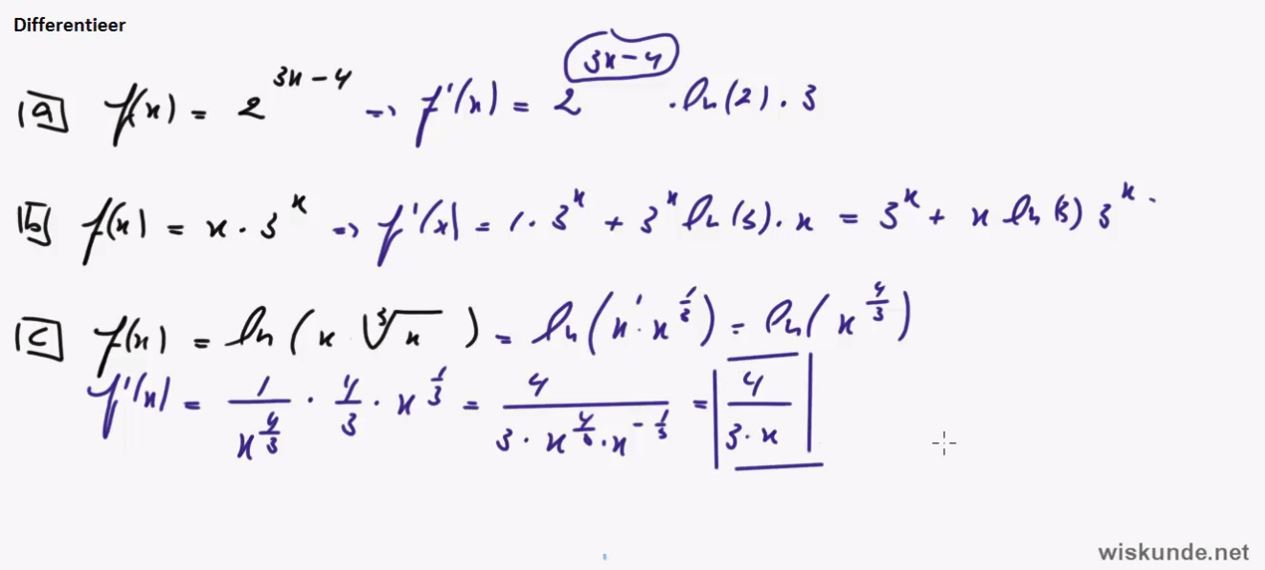 Differentieer
a) f(x) = 2^(3x-4) → f'(x) = 2^(3x-4) · ln(2) · 3
b) f(x) = x · 3^x → f'(x) = 1 · 3^x + 3^x ln(3) · x = 3^x + x ln(3) 3^x .
c) f(x) = ln(x ∛x) = ln(x^1 · x^(1/3)) = ln(x^(4/3))
f'(x) = 1/x^(4/3) · 4/3 · x^(1/3) = 4/(3 · x^(4/3) · x^(-1/3)) = 4/(3 · x)
wiskunde.net